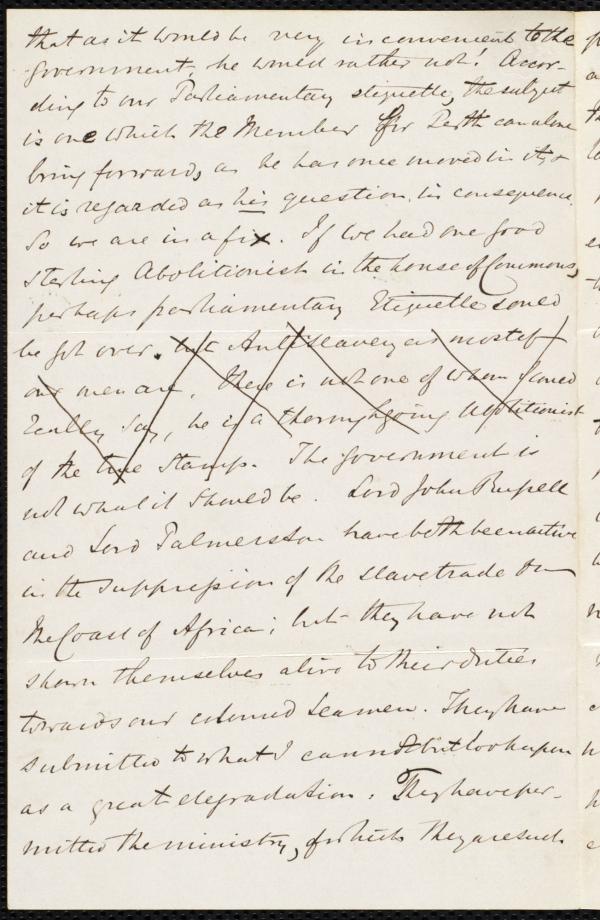 that as it would be very inconvenient to the
government, he would rather not! Accor-
ding to our Parliamentary etiquette, the subject
is one which the Member for Perth can alone
bring forward, as he has once moved in it, &
it is regarded as his question, in consequence.
So we are in a fix. If we had one good
sterling Abolitionist in the house of Commons,
perhaps parliamentary Etiquette could
be got over. but Antislavery as most of
our men are, there is not one of whom I could
really say, he is a thoroughgoing Abolitionist
of the true stamp. The government is
not what it should be. Lord John Russell
and Lord Palmerston have both been active
in the suppression of the slave trade on
the Coast of Africa; but they have not
shown themselves alive to their duties
towards our colored seamen. They have
submitted to what I cannot but look upon
as a great degradation. They have per-
mitted the ministry, of which they are such